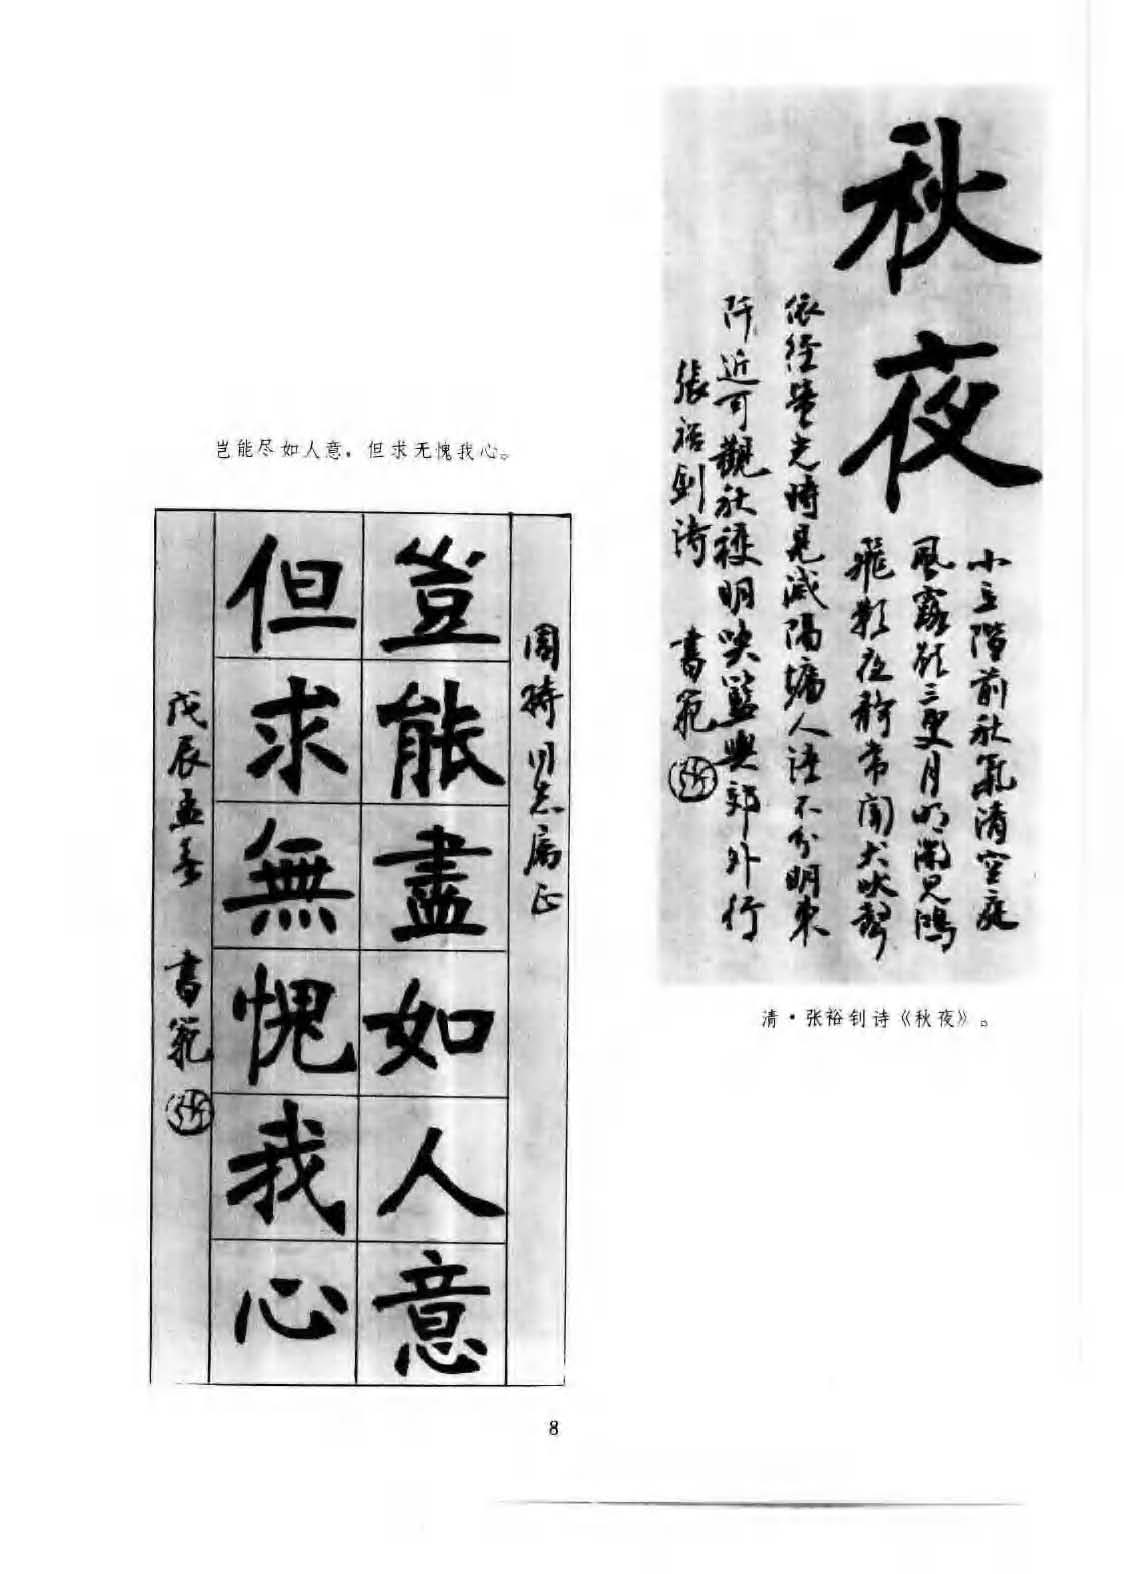 秋夜
小立階前秋氣清空庭
風露欲三更月明閒見鴻
飛影夜靜常聞犬吠聲
依經螢光時見滅隔牆人語不分明東
阡近可觀秋穫明日籃輿郊外行
張裕釗詩 書範
清·张裕钊诗《秋夜》。
岂能尽如人意，但求无愧我心。
同志属正
豈能盡如人意
但求無愧我心
戊辰孟春 書範
8